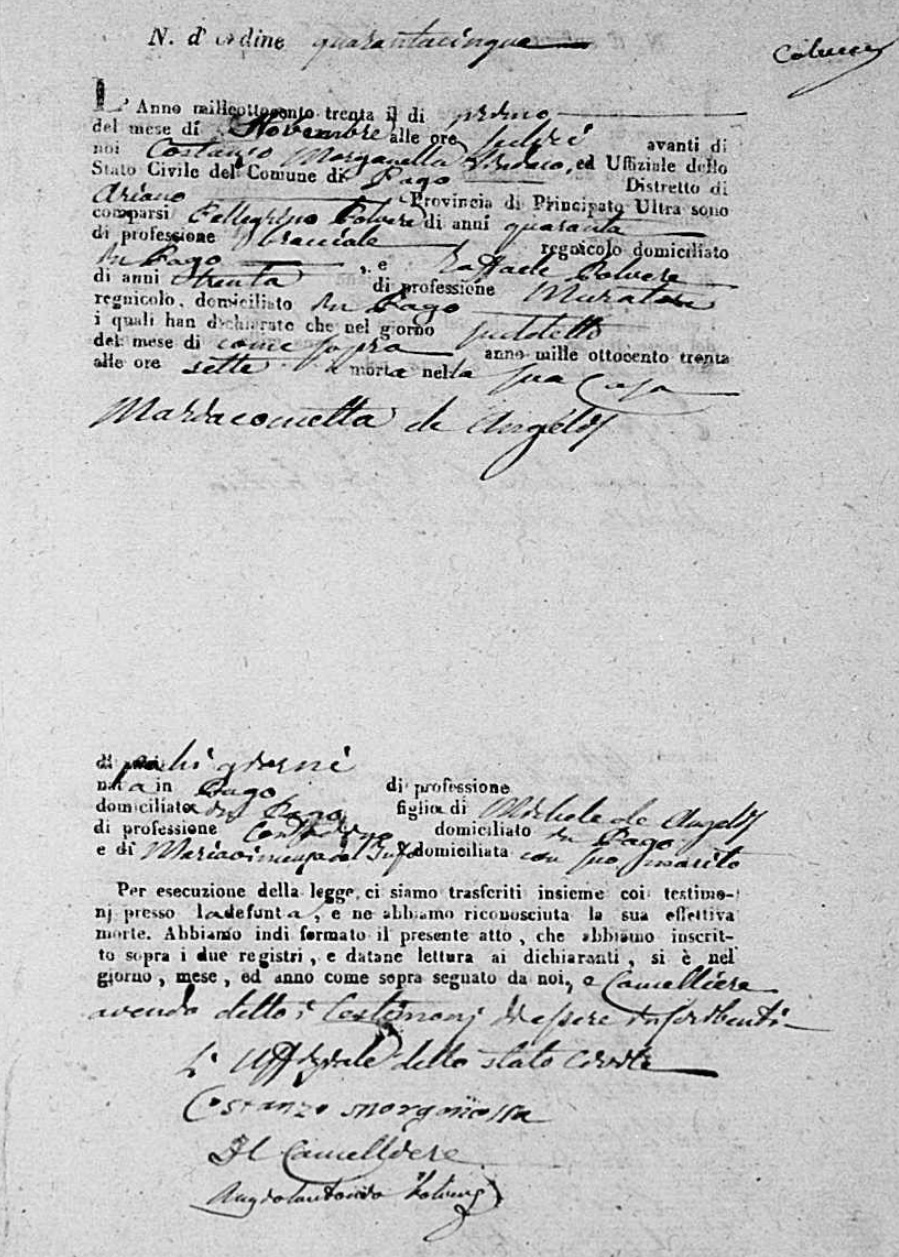 N. d'ordine quarantacinque
Colucci
L'Anno milleottocento trenta il di primo
del mese di Novembre alle ore sedici avanti di
noi Costanzo Morganella Sindaco, ed Uffiziale dello
Stato Civile del Comune di Pago Distretto di
Ariano Provincia di Principato Ultra sono
comparsi Pellegrino Polvere di anni quaranta
di professione bracciale regnicolo domiciliato
in Pago , e Raffaele Polvere
di anni trenta di professione Muratore
regnicolo, domiciliato in Pago
i quali han dichiarato che nel giorno suddetto
del mese di come sopra anno mille ottocento trenta
alle ore sette morta nella sua Casa
Mariacometta de Angelis
di pochi giorni
nata in Pago di professione
domiciliata in Pago figlia di Michele de Angelis
di professione Contadino domiciliato in Pago
e di domiciliata con suo marito
Per esecuzione della legge, ci siamo trasferiti insieme coi testimo-
nj presso la defunta, e ne abbiamo riconosciuta la sua effettiva
morte. Abbiamo indi formato il presente atto, che abbiamo inscrit-
to sopra i due registri, e datane lettura ai dichiaranti, si è nel
giorno, mese, ed anno come sopra segnato da noi, e Cancelliere
avendo detto i testimonj di essere inscribenti
L'Uffiziale dello stato Civile
Costanzo Morganella
Il Cancelliere
Angelantonio